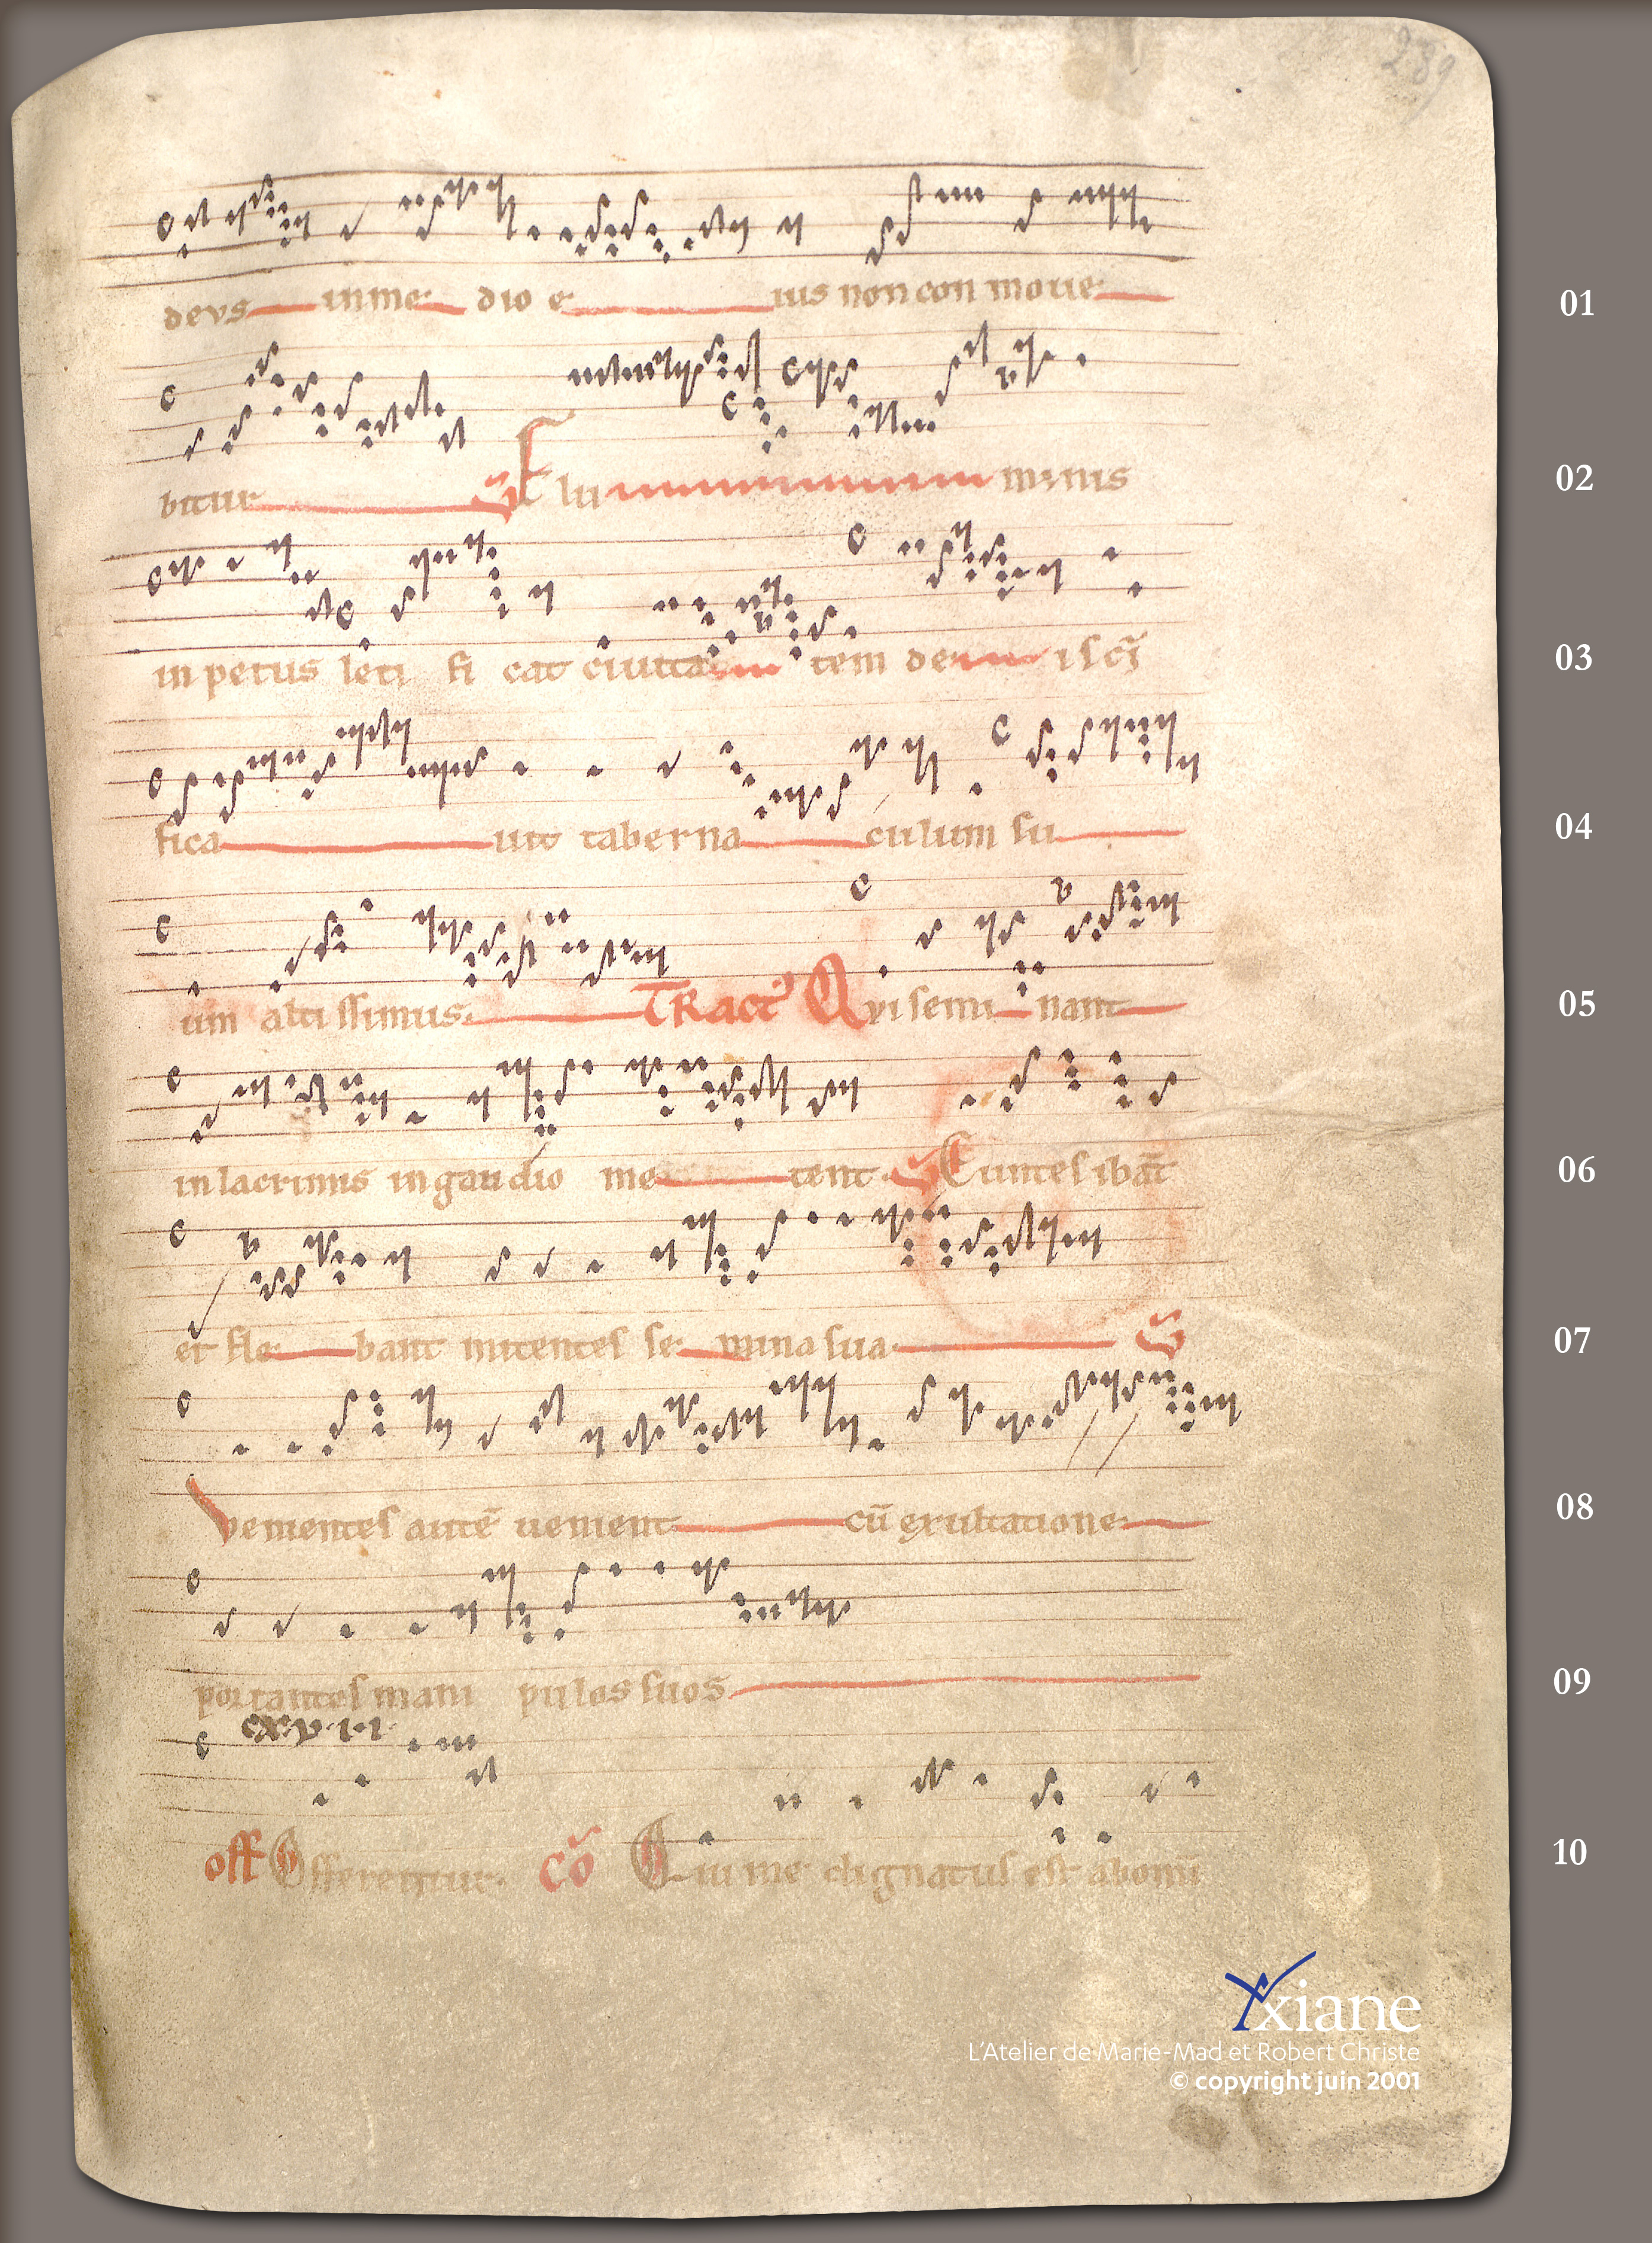 239
devs in me dio e ius non con moue 01
bitur V Flu minis 02
in petus leti fi cat ciuita tem de i scī 03
fica uit taberna culum su 04
um alti ssimus. TRact9 Qvi semi nant 05
in lacrimis in gaudio me tent. V Euntes ibāt 06
et fle bant mitentes se mina sua V 07
Venientes autē uenient cū exultatione 08
portantes mani pulos suos 09
cxv.i.i.
off Offerentur. cō Qui me dignatus est ab omī 10
Yxiane
L'Atelier de Marie-Mad et Robert Christe
© copyright juin 2001